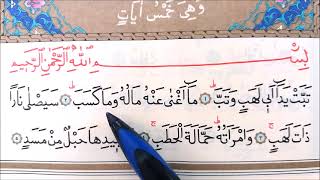 وَهِيَ خَمْسُ اٰيَاتٍ
بِسْمِ اللّٰهِ الرَّحْمٰنِ الرَّحٖيمِ
تَبَّتْ يَدَٓا اَبٖي لَهَبٍ وَتَبَّ ﴿١﴾ مَٓا اَغْنٰى عَنْهُ مَالُهُ وَمَا كَسَبَ ﴿٢﴾ سَيَصْلٰى نَارًا
ذَاتَ لَهَبٍ ﴿٣﴾ وَامْرَاَتُهُ حَمَّالَةَ الْحَطَبِ ﴿٤﴾ جٖيدِهَا حَبْلٌ مِنْ مَسَدٍ ﴿٥﴾